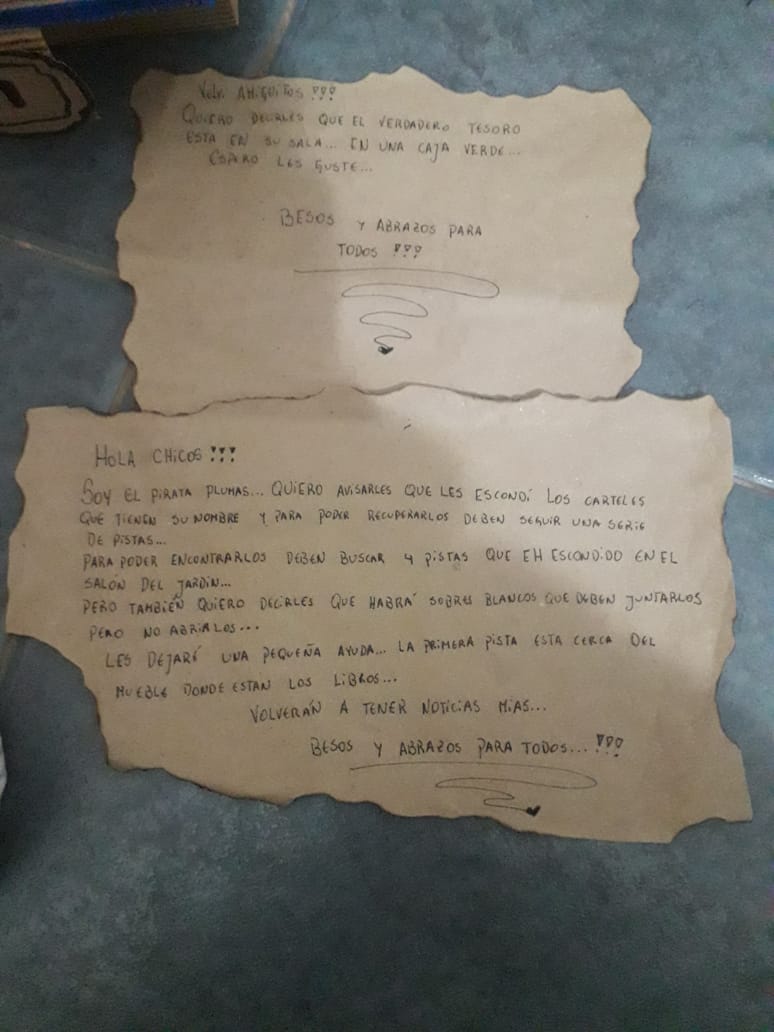 Volví AMIGUITOS !!!
QUIERO DECIRLES QUE EL VERDADERO TESORO
ESTA EN SU SALA... EN UNA CAJA VERDE...
ESPERO LES GUSTE...
BESOS Y ABRAZOS PARA
TODOS !!!
HOLA CHICOS !!!
SOY EL PIRATA PLUMAS... QUIERO AVISARLES QUE LES ESCONDÍ LOS CARTELES
QUE TIENEN SU NOMBRE Y PARA PODER RECUPERARLOS DEBEN SEGUIR UNA SERIE
DE PISTAS...
PARA PODER ENCONTRARLOS DEBEN BUSCAR 4 PISTAS QUE EH ESCONDIDO EN EL
SALÓN DEL JARDÍN...
PERO TAMBIÉN QUIERO DECIRLES QUE HABRÁ SOBRES BLANCOS QUE DEBEN JUNTARLOS
PERO NO ABRIRLOS...
LES DEJARÉ UNA PEQUEÑA AYUDA... LA PRIMERA PISTA ESTA CERCA DEL
MUEBLE DONDE ESTAN LOS LIBROS...
VOLVERÁN A TENER NOTICIAS MIAS...
BESOS Y ABRAZOS PARA TODOS... !!!